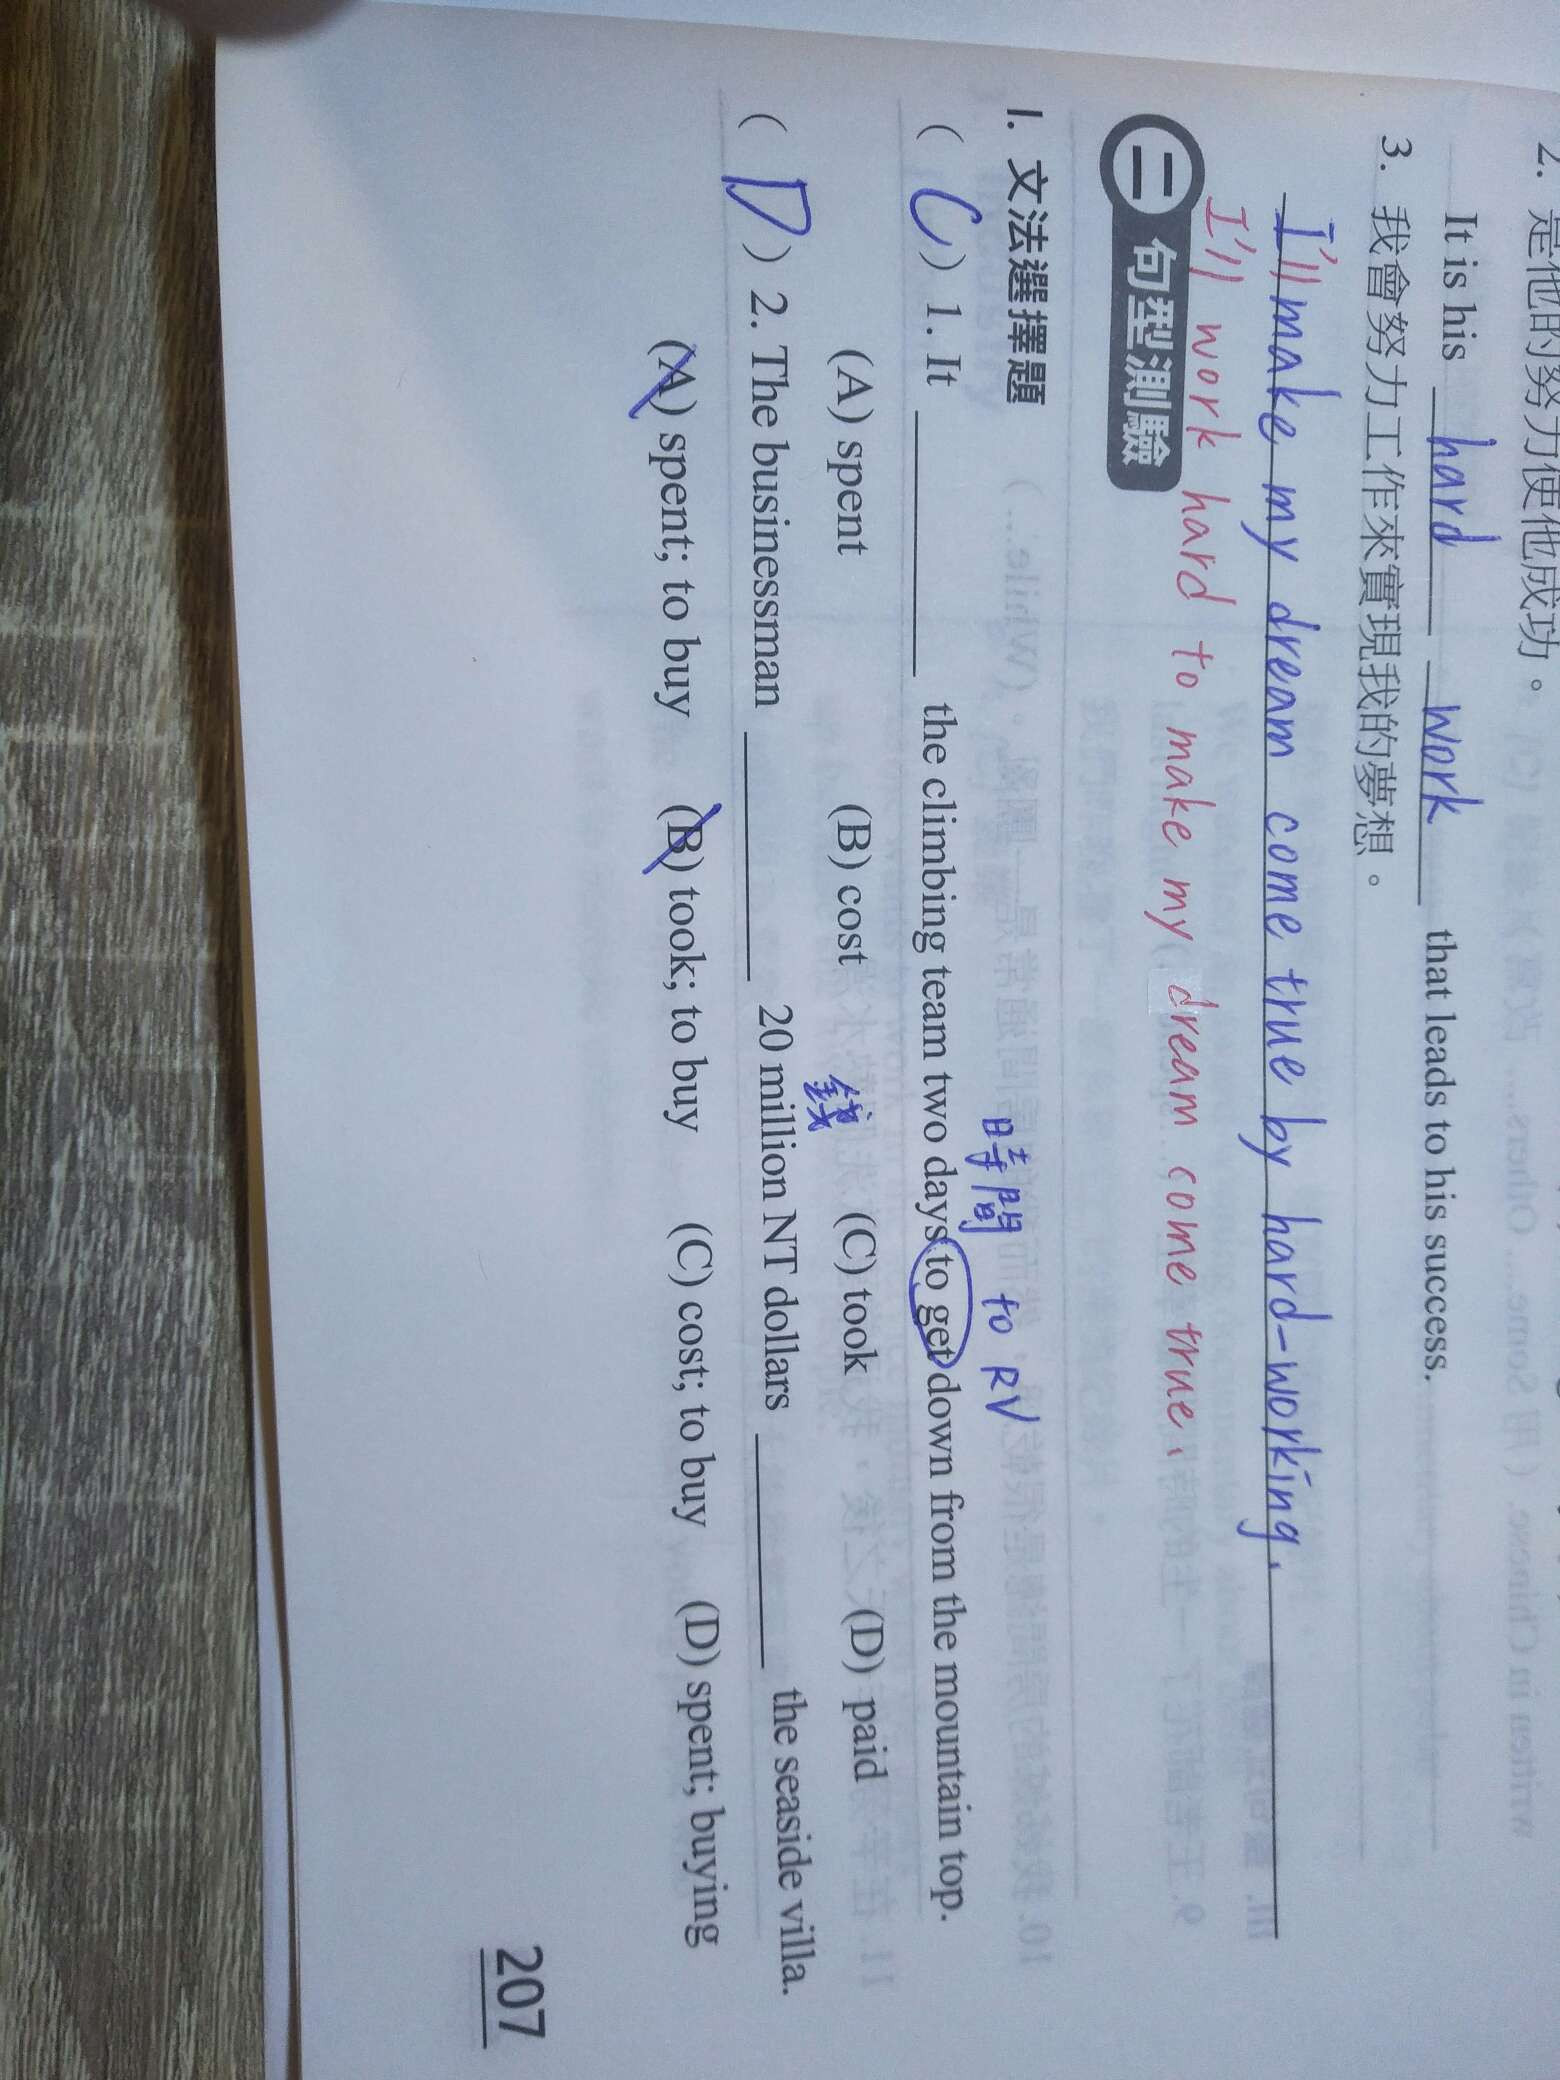 2. 是他的努力使他成功。
It is his hard work that leads to his success.
3. 我會努力工作來實現我的夢想。
I'll make my dream come true by hard-working.
I'll work hard to make my dream come true.
二 句型測驗
I. 文法選擇題
時間 to RV
( C ) 1. It ______ the climbing team two days to get down from the mountain top.
(A) spent (B) cost (C) took (D) paid
錢
( D ) 2. The businessman ______ 20 million NT dollars ______ the seaside villa.
(A) spent; to buy (B) took; to buy (C) cost; to buy (D) spent; buying
207